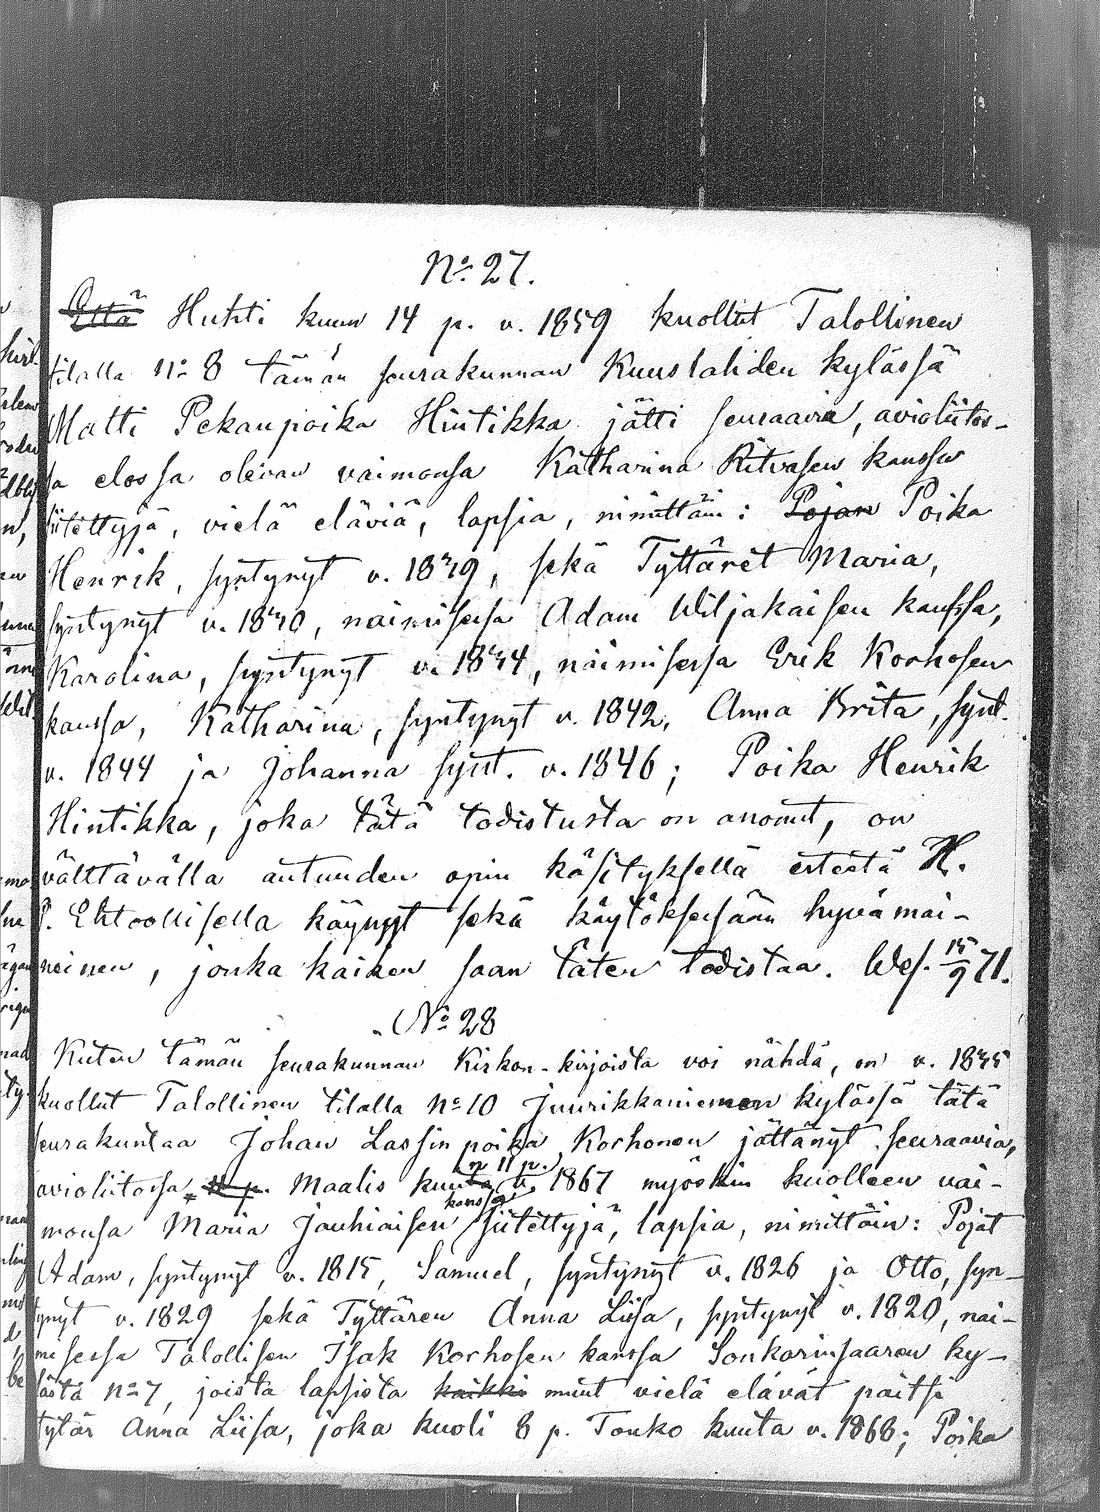 No 27.
Että Huhti kuun 14 p. v. 1859 kuollut Talollinen
tilalla No 8 tämän seurakunnan Kuuslahden kylässä
Matti Pekanpoika Hintikka jätti seuraavia, avioliitos-
sa elossa olevan vaimonsa Katharina Ritvasen kanssa
siitettyjä, vielä eläviä, lapsia, nimittäin: Pojan Poika
Henrik, syntynyt v. 1849, sekä Tyttäret Maria,
syntynyt v. 1840, naimisessa Adam Wiljakaisen kanssa,
Karolina, syntynyt v. 1844, naimisessa Erik Korhosen
kanssa, Katharina, syntynyt v. 1842, Anna Brita, synt.
v. 1844 ja Johanna synt. v. 1846; Poika Henrik
Hintikka, joka tätä todistusta on anonut, on
välttävällä autuuden opin käsityksellä esteetä H.
P. Ehtoollisella käynyt sekä käytöksessään hyvämai-
neinen, jonka kaiken saan täten todistaa. Wes. 15/9 71.
No 28
Kuten tämän seurakunnan Kirkon-kirjoista voi nähdä, on v. 1845
kuollut Talollinen tilalla No 10 Juurikkaniemen kylässä tätä
seurakuntaa Johan Lassin poika Korhonen jättänyt seuraavia,
avioliitossa, 11 p. Maalis kuuta n 11 p. v. 1867 myöskin kuolleen vai-
monsa Maria Jauhiaisen kanssa siitettyjä, lapsia, nimittäin: Pojat
Adam, syntynyt v. 1815, Samuel, syntynyt v. 1826 ja Otto, syn-
tynyt v. 1829 sekä Tyttären Anna Liisa, syntynyt v. 1820, nai-
misessa Talollisen Isak Korhosen kanssa Sonkarinsaaren ky-
lästä No 7, joista lapsista kaikki muut vielä elävät paitsi
tytär Anna Liisa, joka kuoli 8 p. Touko kuuta v. 1868; Poika